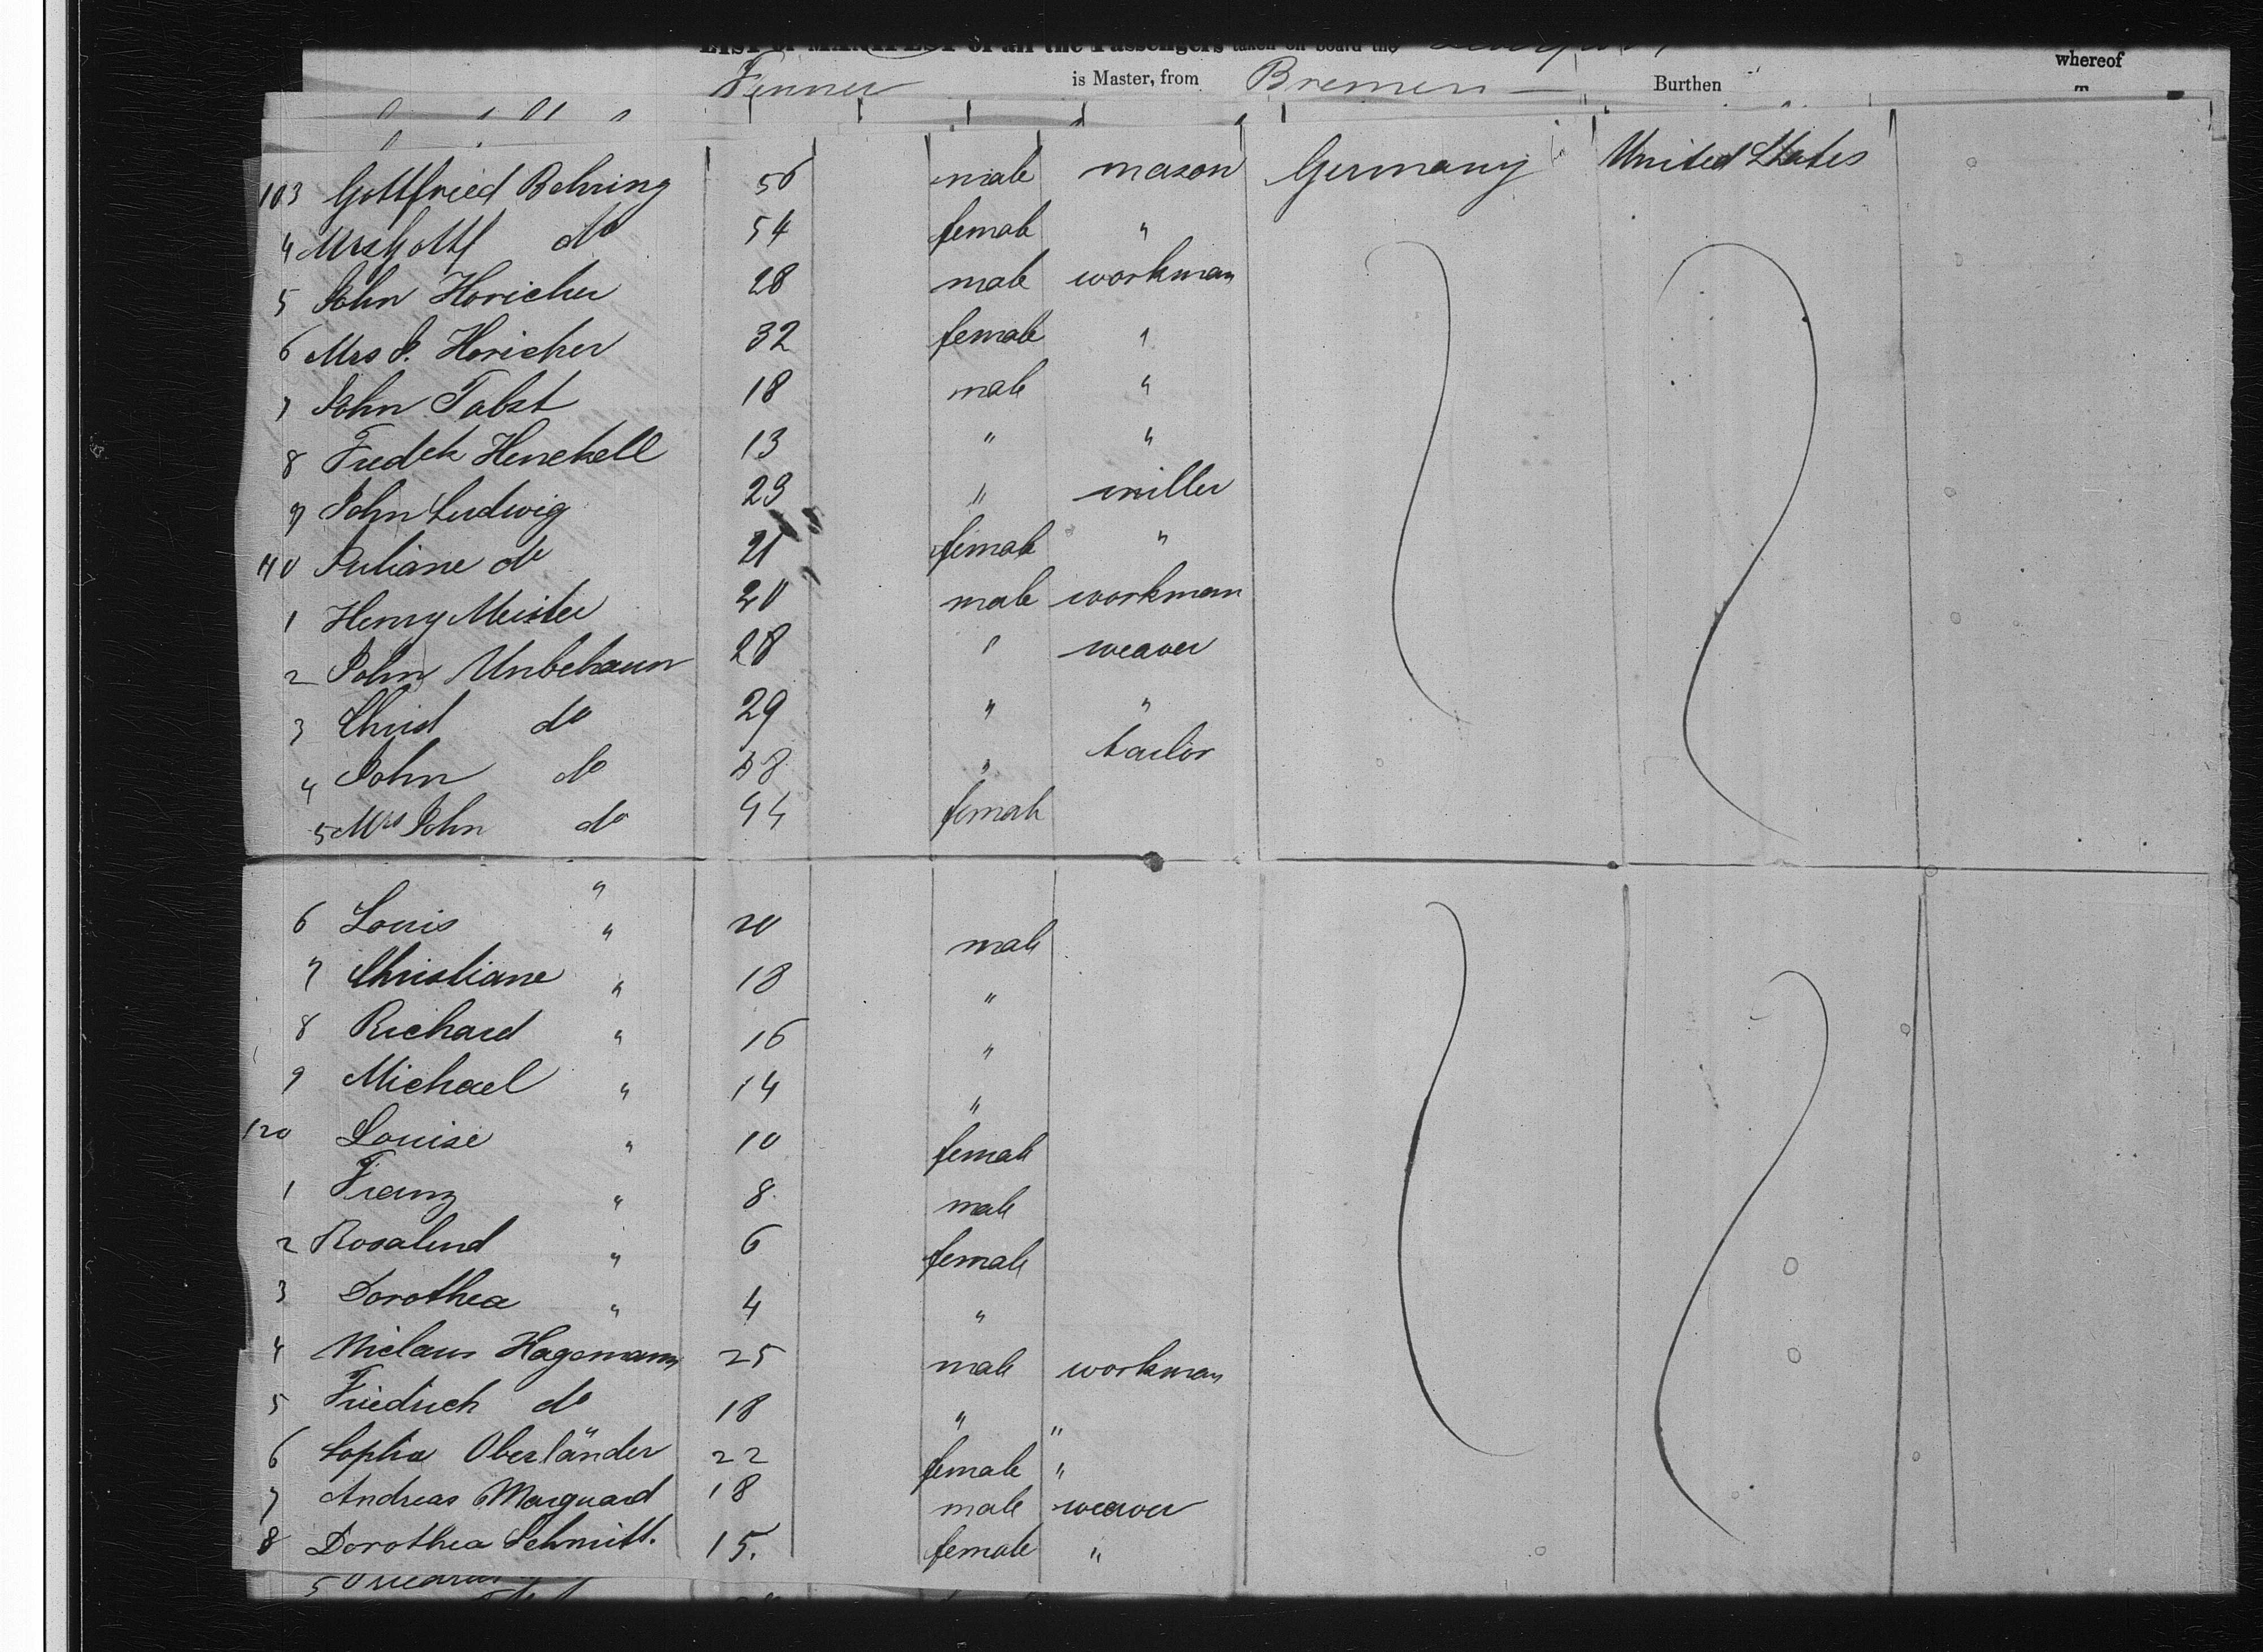 LIST or MANIFEST of all the Passengers taken on board the
whereof
is Master, from Bremen Burthen
103 Gottfried Behring 56 male mason Germany United States
4 Mrs Gottf do 54 female "
5 John Horicher 28 male workman
6 Mrs J. Horicher 32 female "
7 John Tabst 18 male "
8 Fredek Henckell 13 " "
9 John Ludwig 23 " miller
110 Juliane do 21 female "
1 Henry Meister 20 male workman
2 John Unbehaun 28 " weaver
3 Christ do 29 " "
4 John do 48 " tailor
5 Mrs John do 44 female
"
6 Louis " 20 male
7 Christiane " 18 "
8 Richard " 16 "
9 Michael " 14 "
120 Louise " 10 female
1 Franz " 8 male
2 Rosalind " 6 female
3 Dorothea " 4 "
4 Niclaus Hagemann 25 male workman
5 Friedrich do 18 " "
6 Sophia Oberländer 22 female "
7 Andreas Marquard 18 male weaver
8 Dorothea Schmitt. 15. female "